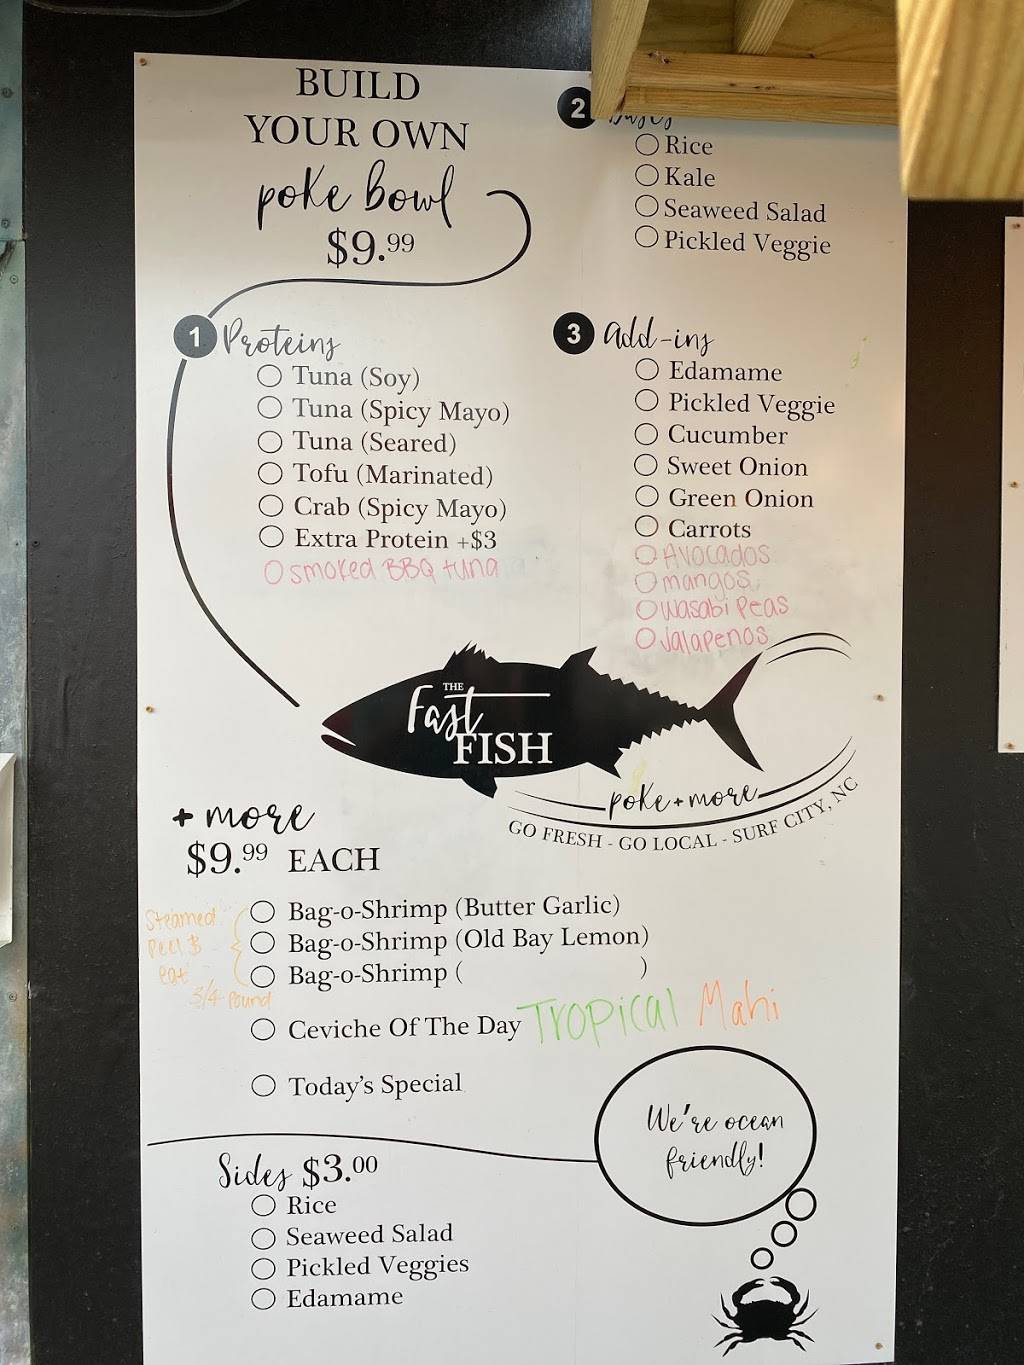 BUILD
YOUR OWN
poke bowl
$9.99
1 Proteins
Tuna (Soy)
Tuna (Spicy Mayo)
Tuna (Seared)
Tofu (Marinated)
Crab (Spicy Mayo)
Extra Protein +$3
smoked BBQ tuna
2
Rice
Kale
Seaweed Salad
Pickled Veggie
3 Add-ins
Edamame
Pickled Veggie
Cucumber
Sweet Onion
Green Onion
Carrots
Avocados
mangos
wasabi peas
Jalapenos
THE
Fast
FISH
poke + more
GO FRESH - GO LOCAL - SURF CITY, NC
+ more
$9.99 EACH
Steamed
Peel &
eat
3/4 Pound
Bag-o-Shrimp (Butter Garlic)
Bag-o-Shrimp (Old Bay Lemon)
Bag-o-Shrimp ( )
Ceviche Of The Day Tropical Mahi
Today's Special
We're ocean
friendly!
Sides $3.00
Rice
Seaweed Salad
Pickled Veggies
Edamame